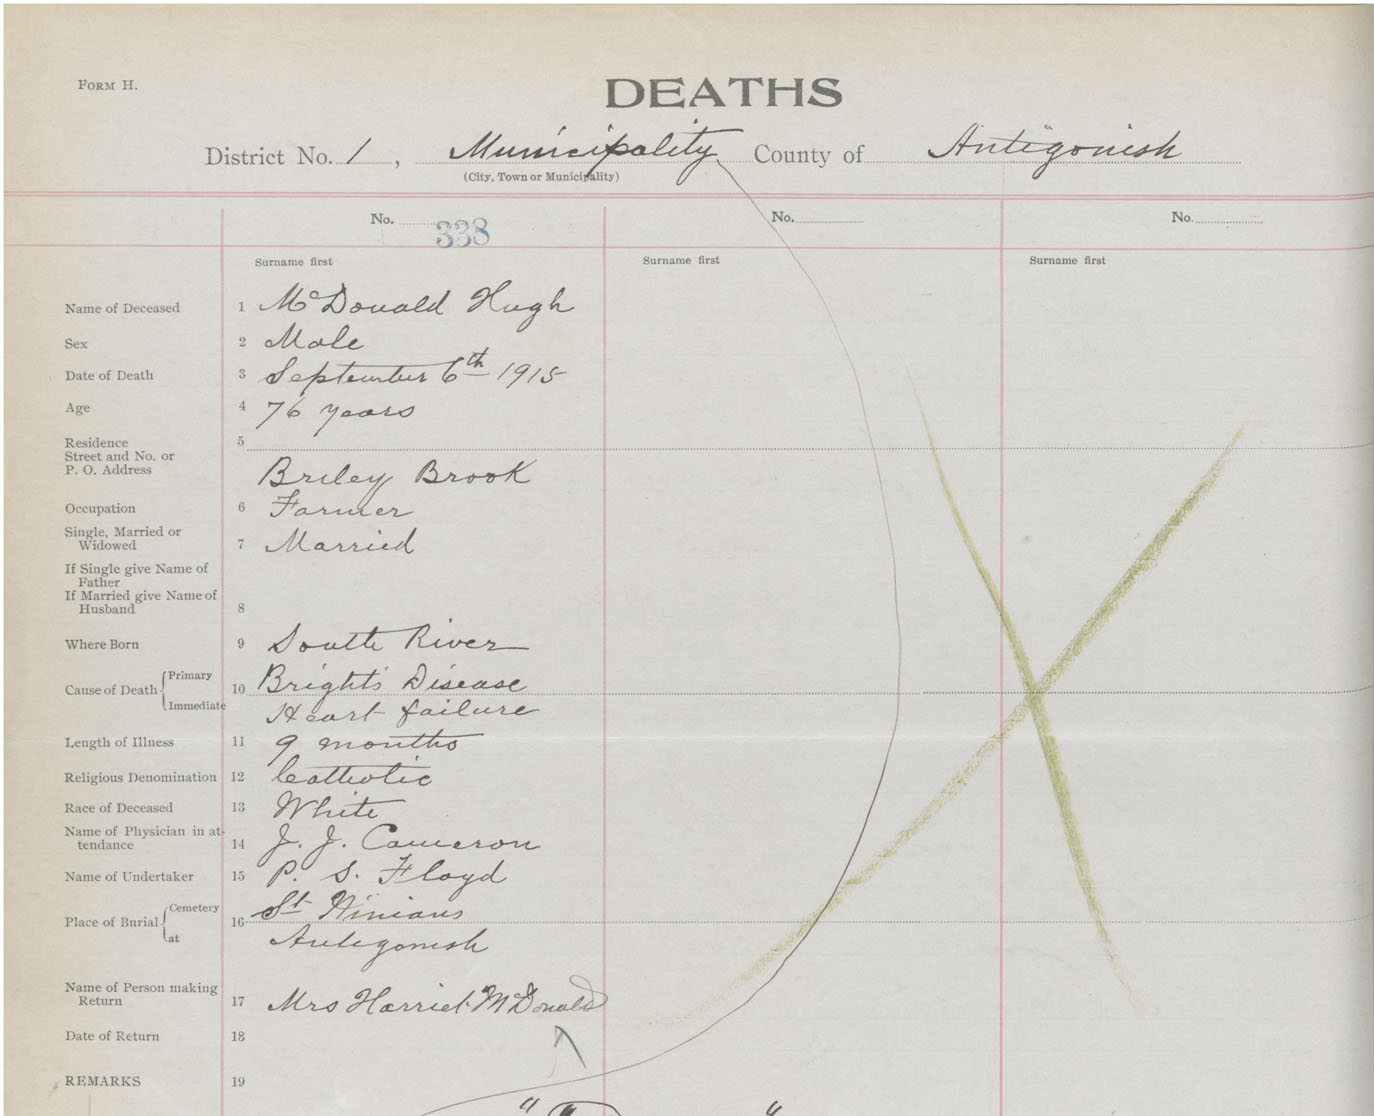 FORM H.
DEATHS
District No. 1, Municipality County of Antigonish
(City, Town or Municipality)
No. 338 No. No.
Surname first Surname first Surname first
Name of Deceased 1 McDonald Hugh
Sex 2 Male
Date of Death 3 September 6th 1915
Age 4 76 years
Residence 5
Street and No. or
P. O. Address Briley Brook
Occupation 6 Farmer
Single, Married or
Widowed 7 Married
If Single give Name of
Father
If Married give Name of
Husband 8
Where Born 9 South River
Cause of Death Primary 10 Bright's Disease
Immediate Heart failure
Length of Illness 11 9 months
Religious Denomination 12 Catholic
Race of Deceased 13 White
Name of Physician in at-
tendance 14 J. J. Cameron
Name of Undertaker 15 P. S. Floyd
Place of Burial Cemetery 16 St Ninians
at Antigonish
Name of Person making
Return 17 Mrs Harriet McDonald
Date of Return 18
REMARKS 19